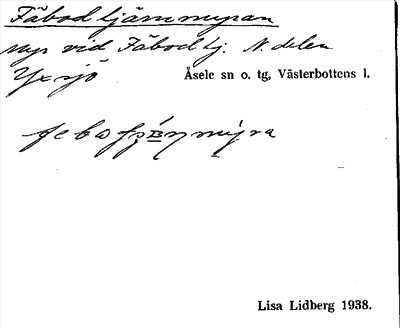 Fäbodtjärnmyran
myr vid Fäbodtj. N. delen
Yxsjö Åsele sn o. tg, Västerbottens l.
Lisa Lidberg 1938.